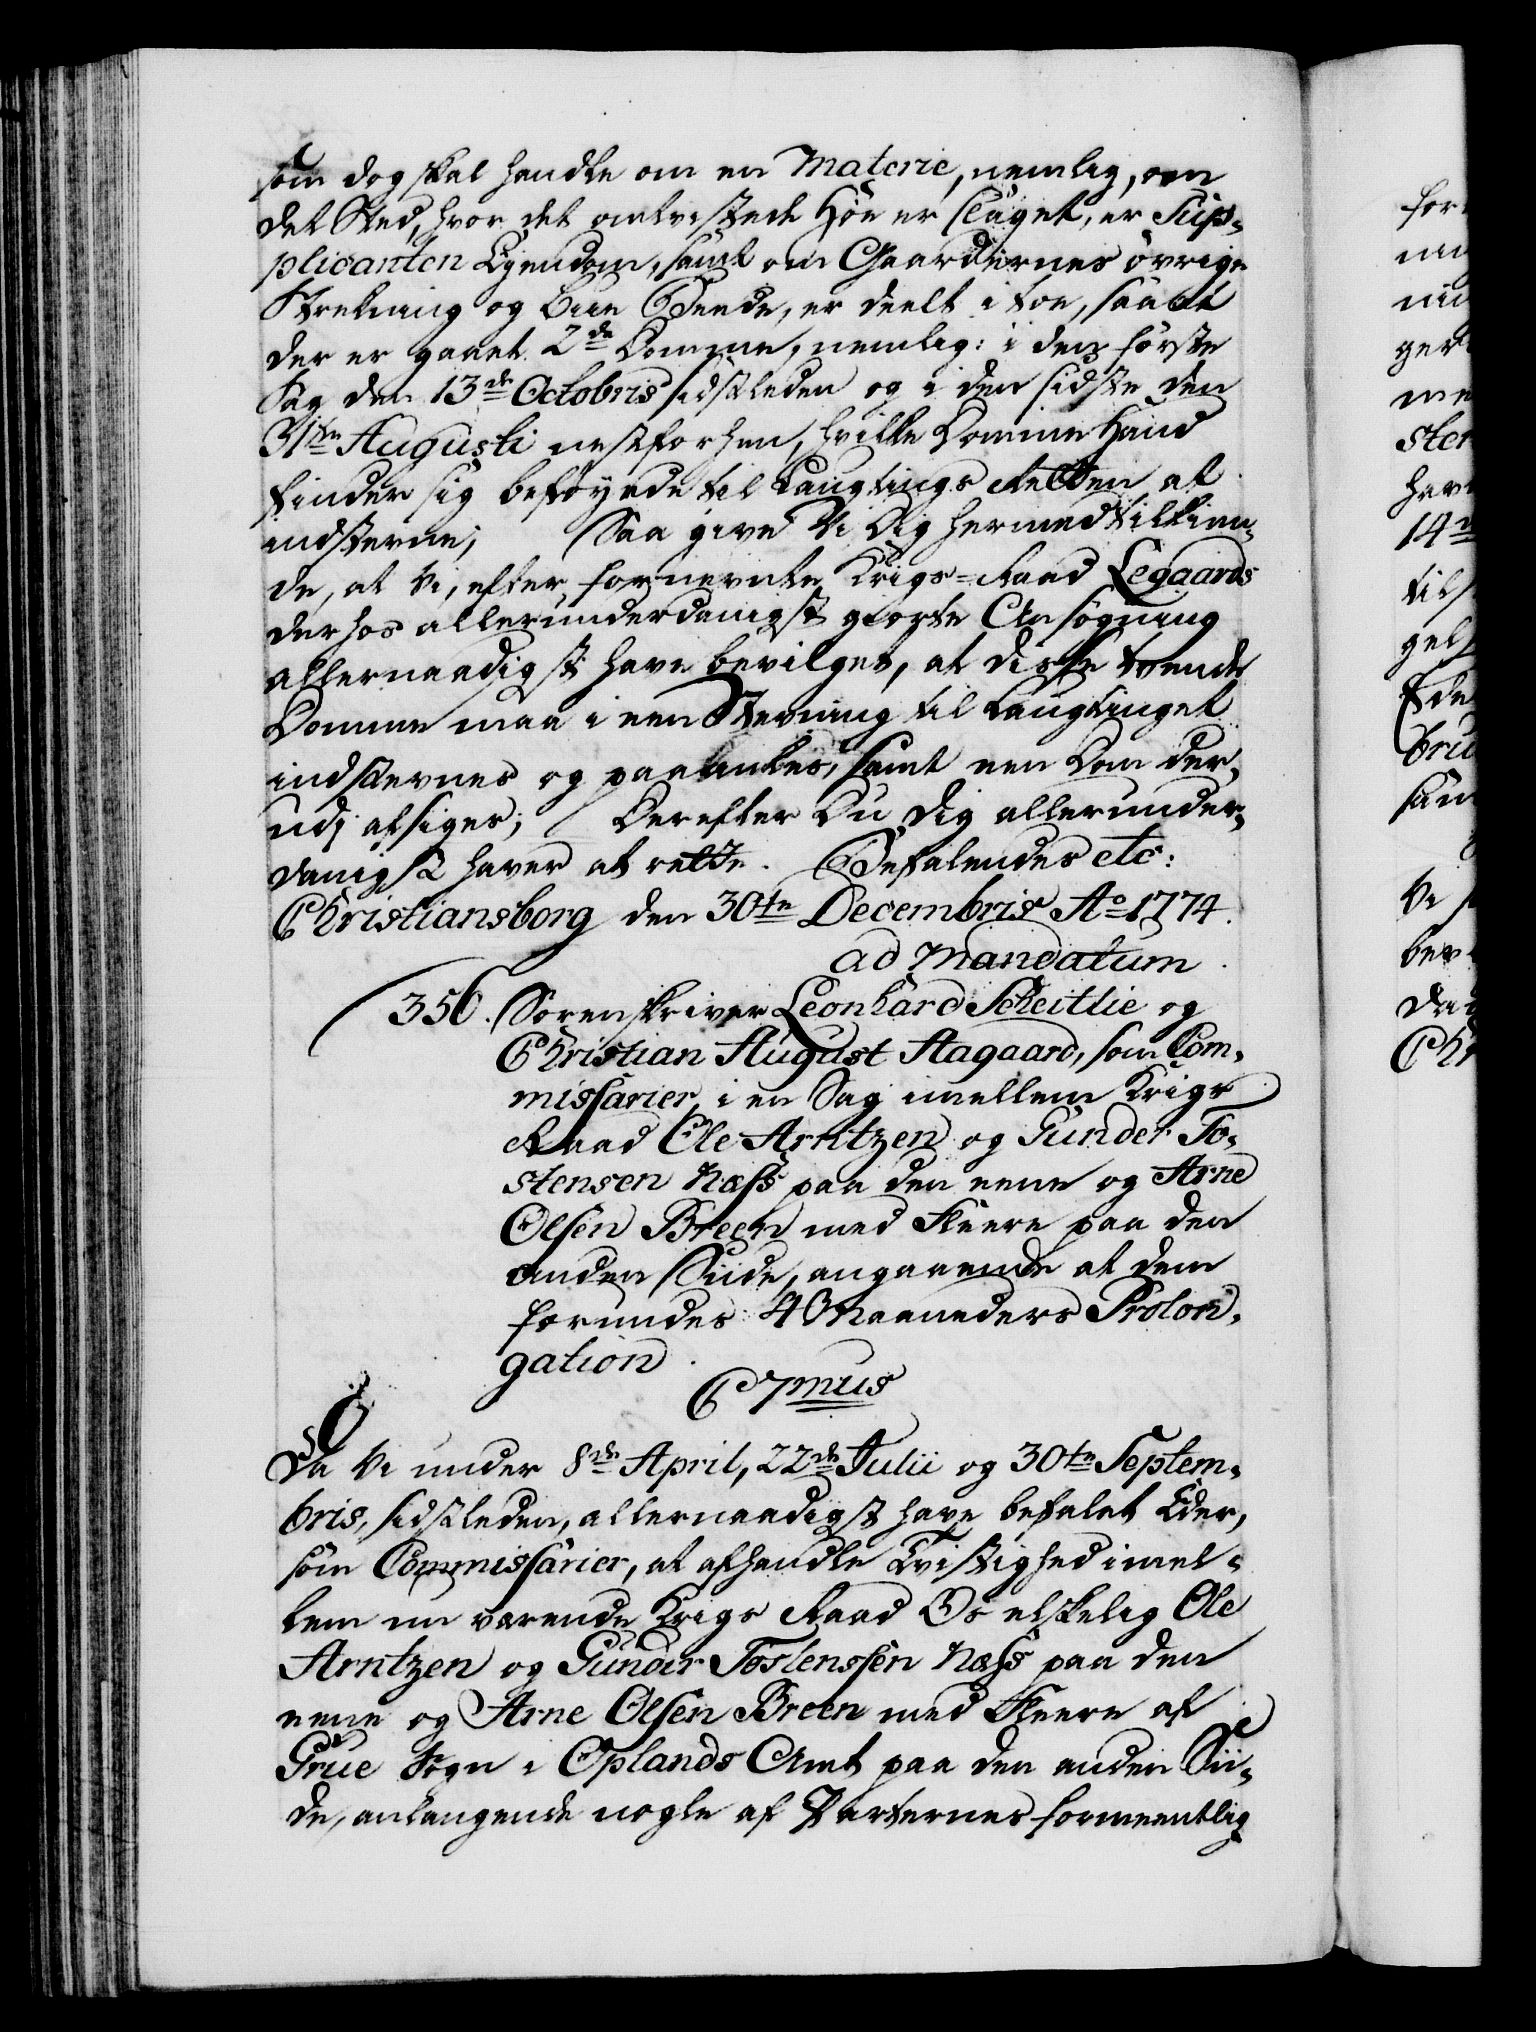 som dog skal handle om en Materie, nemlig, om
det Sted, hvor det omtvistede Höe er slaget, er Sup-
plicanten Ejendom, samt om Gaardernes øvrige
Strekning og Bemeldte, er deelt i toe, saa at
der er gaaet 2de Domme, nemlig: i den første
Sag den 13de Octobris sidstleden og i den sidste den
31te Augusti nestforhen, hvilke Domme Hand
finder sig beføyede til Laugtings Retten at
indstevne; Saa give Vi Dig hermed tilkien-
de, at Vi, efter fornevnte Krigs-Raad Legaards
derhos allerunderdanigst giorte Ansøgning
allernaadigst have bevilget, at disse tvende
Domme maa i een Stevning til Laugtinget
indstevnes og paaankes, samt een Dom der-
udj afsiges; Derefter Du Dig allerunder-
danigst haver at rette. Befalendes etc:
Christiansborg den 30te Decembris Ao 1774.
ad Mandatum.
356. Sorenskriver Leonhard Scheitlie og
Christian August Aagaard, som Com-
missarier, i en Sag imellem Krigs
Raad Ole Arntzen og Gunder To-
stensen Næss paa den eene og Arne
Olsen Breen med Fleere paa den
anden Siide, angaaende at dem
forundes 4 Maaneders Prolon-
gation.
C 7mus
Da Vi under 8de April, 22de Julii og 30te Septem-
bris, sidstleden, allernaadigst have befalet Eder,
som Commissarier, at afhandle Tvistighed imel-
lem nu værende Krigs Raad Os elskelig Ole
Arntzen og Gunder Tostenssen Næss paa den
eene og Arne Olsen Breen med Fleere af
Grue Sogn i Oplands Amt paa den anden Sii-
de, anlangende nogle af Parternes formeentlig